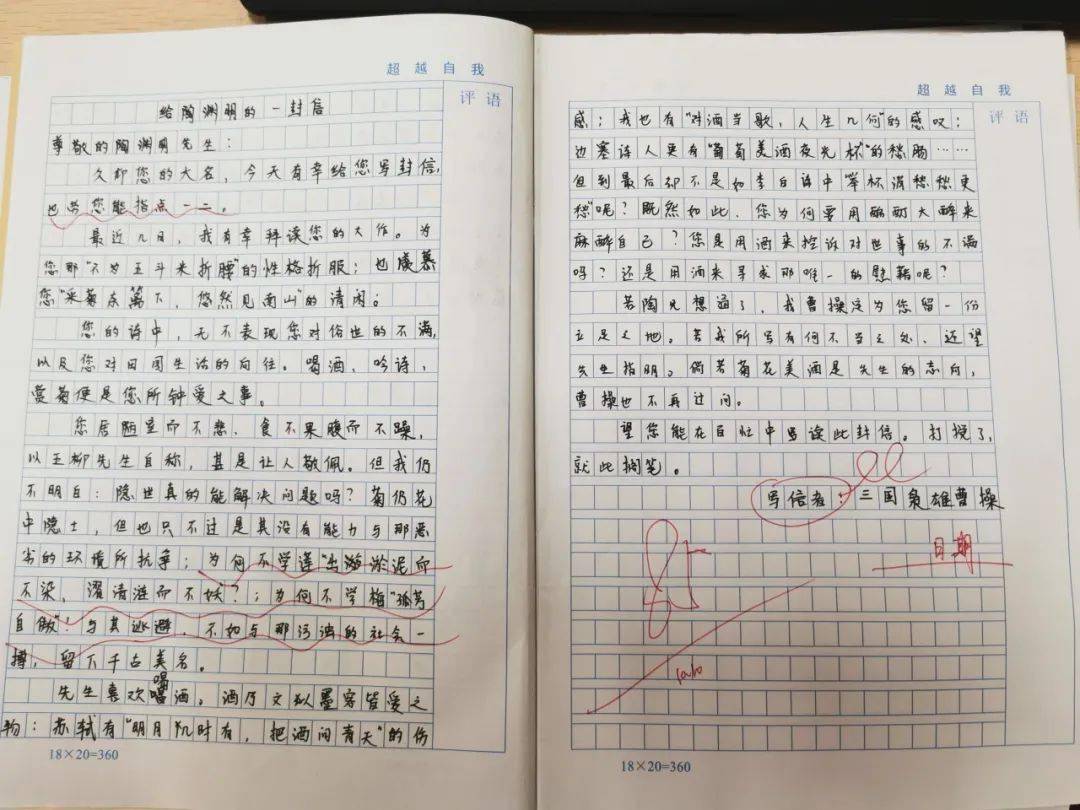 超越自我
评语
给陶渊明的一封信
尊敬的陶渊明先生：
久仰您的大名，今天有幸给您写封信，
也望您能指点一二。
最近几日，我有幸拜读您的大作。为
您那"不为五斗米折腰"的性格折服；也羡慕
您"采菊东篱下，悠然见南山"的清闲。
您的诗中，无不表现您对俗世的不满，
以及您对田园生活的向往。喝酒，吟诗，
赏菊便是您所钟爱之事。
您居陋室而不悲，食不果腹而不躁，
以五柳先生自称，甚是让人敬佩。但我仍
不明白：隐世真的能解决问题吗？菊仍花
中隐士，但也只不过是其没有能力与那恶
劣的环境所抗争；为何不学莲"出淤泥而
不染，濯清涟而不妖"？；为何不学梅"孤芳
自傲"！与其逃避，不如与那污浊的社会一
搏，留下千古美名。
喝
先生喜欢酒。酒乃文人墨客皆爱之
物：苏轼有"明月几时有，把酒问青天"的伤
18×20=360
超越自我
评语
感；我也有"对酒当歌，人生几何"的感叹；
边塞诗人更有"葡萄美酒夜光杯"的愁肠……
但到最后却不是如李白诗中"举杯消愁愁更
愁"呢？既然如此，您为何要用酩酊大醉来
麻醉自己？您是用酒来控诉对世事的不满
吗？还是用酒来寻求那唯一的慰藉呢？
若陶兄想通了，我曹操定为您留一份
立足之地。若我所写有何不当之处，还望
先生指明。倘若菊花美酒是先生的志向，
曹操也不再过问。
望您能在百忙中阅读此封信。打扰了，
就此搁笔。
写信者：三国枭雄曹操
日期
18×20=360